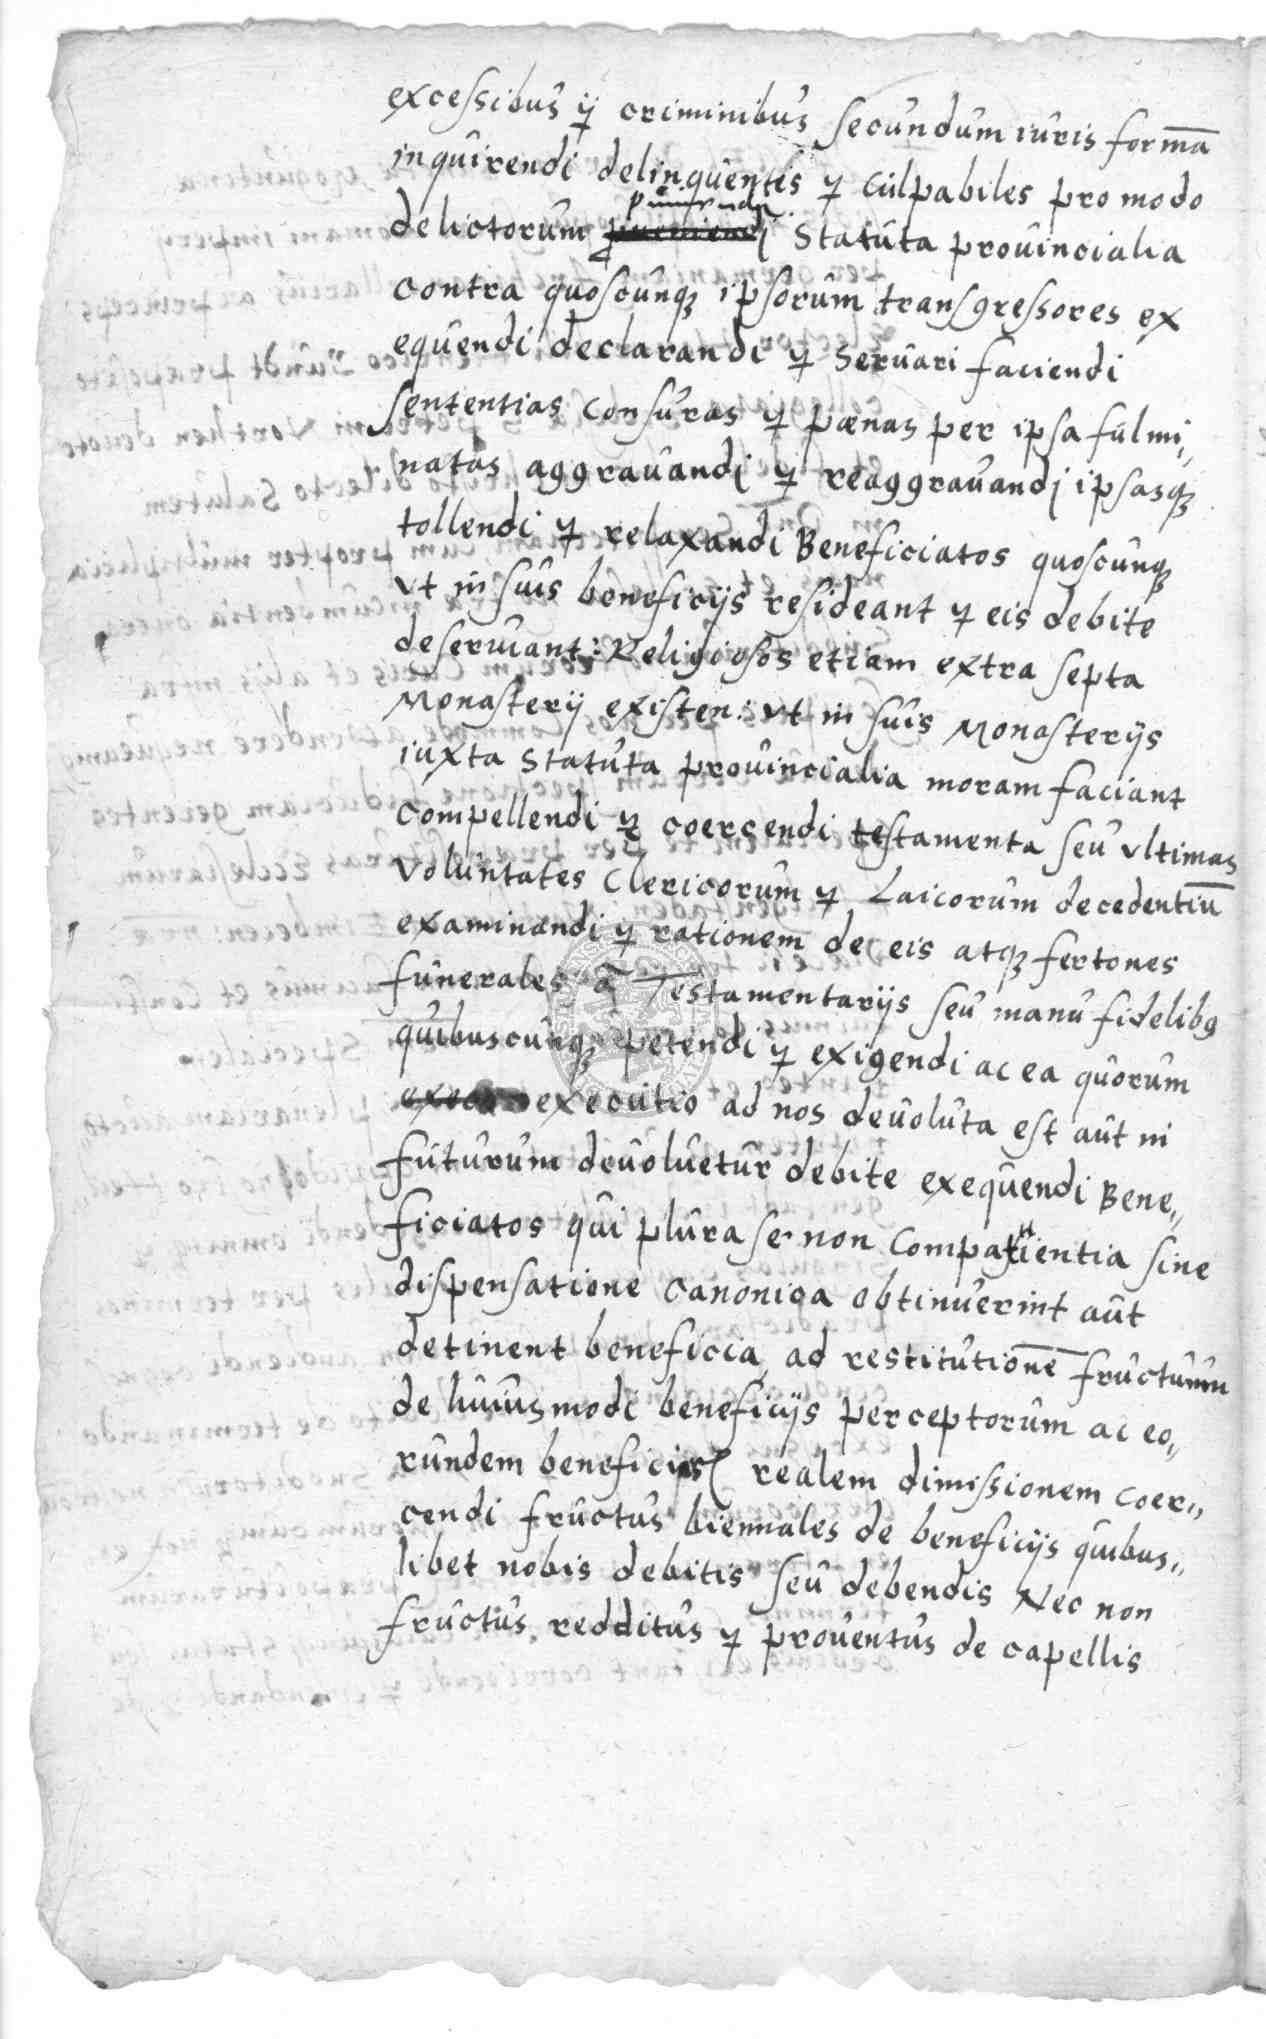 excessibus et criminibus secundum iuris formā
inquirendi delinquentes et culpabiles pro modo
delictorum puniendi Statuta provincialia
contra quoscunq₃ ipsorum transgressores ex
equendi declarandi et servari faciendi
sententias consuras et pœnas per ipsa fulmi„
natas aggravandi et reaggravandi ipsasq₃
tollendi et relaxandi Beneficiatos quoscunq₃
vt in suis beneficijs resideant et eis debite
deserviant: Religiosos etiam extra septa
Monasterij existen: vt in suis Monasterijs
iuxta Statuta provincialia moram faciant
compellendi et coercendi testamenta seu vltimas
voluntates Clericorum et Laicorum decedentiū
examinandi et rationem de eis atq₃ fertones
funerales a Testamentarijs seu manu fidelibꝯ
quibuscunq₃ petendi et exigendi ac ea quorum
executio ad nos devoluta est aut in
futurum devoluetur debite exequendi Bene„
ficiatos qui plura se non compatientia sine
dispensatione canonica obtinuerint aut
detinent beneficia ad restitutionē fructuum
de huiusmodi beneficijs perceptorum ac eo„
rundem beneficijs realem dimissionem coer„
cendi fructus biennales de beneficijs quibus„
libet nobis debitis seu debendis Nec non
fructus redditus et proventus de capellis